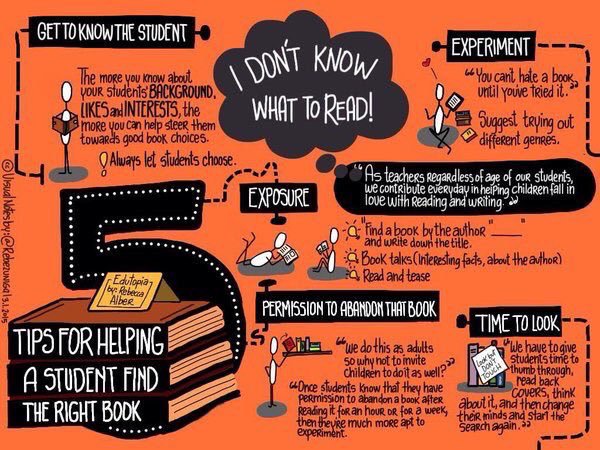 GET TO KNOW THE STUDENT
The more you know about
your students' BACKGROUND,
LIKES and INTERESTS, the
more you can help steer them
towards good book choices.
Always let students choose.
I DON'T KNOW
WHAT TO READ!
EXPERIMENT
"You can't hate a book
until you've tried it."
Suggest trying out
different genres.
"As teachers regardless of age of our students,
we contribute everyday in helping children fall in
love with Reading and writing."
EXPOSURE
"Find a book by the author "____"
and write down the title.
Book talks (Interesting facts, about the author)
Read and tease
5
Edutopia
by: Rebecca
Alber
TIPS FOR HELPING
A STUDENT FIND
THE RIGHT BOOK
PERMISSION TO ABANDON THAT BOOK
"We do this as adults
so why not to invite
children to do it as well?"
"Once students know that they have
permission to abandon a book after
Reading it for an hour or for a week,
then they're much more apt to
experiment.
TIME TO LOOK
Look but
DON'T
TOUCH
"We have to give
students time to
thumb through,
read back
covers, think
about it, and then change
their minds and start the
search again."
© Visual Notes by: @Rebezuniga | 3.1.2015